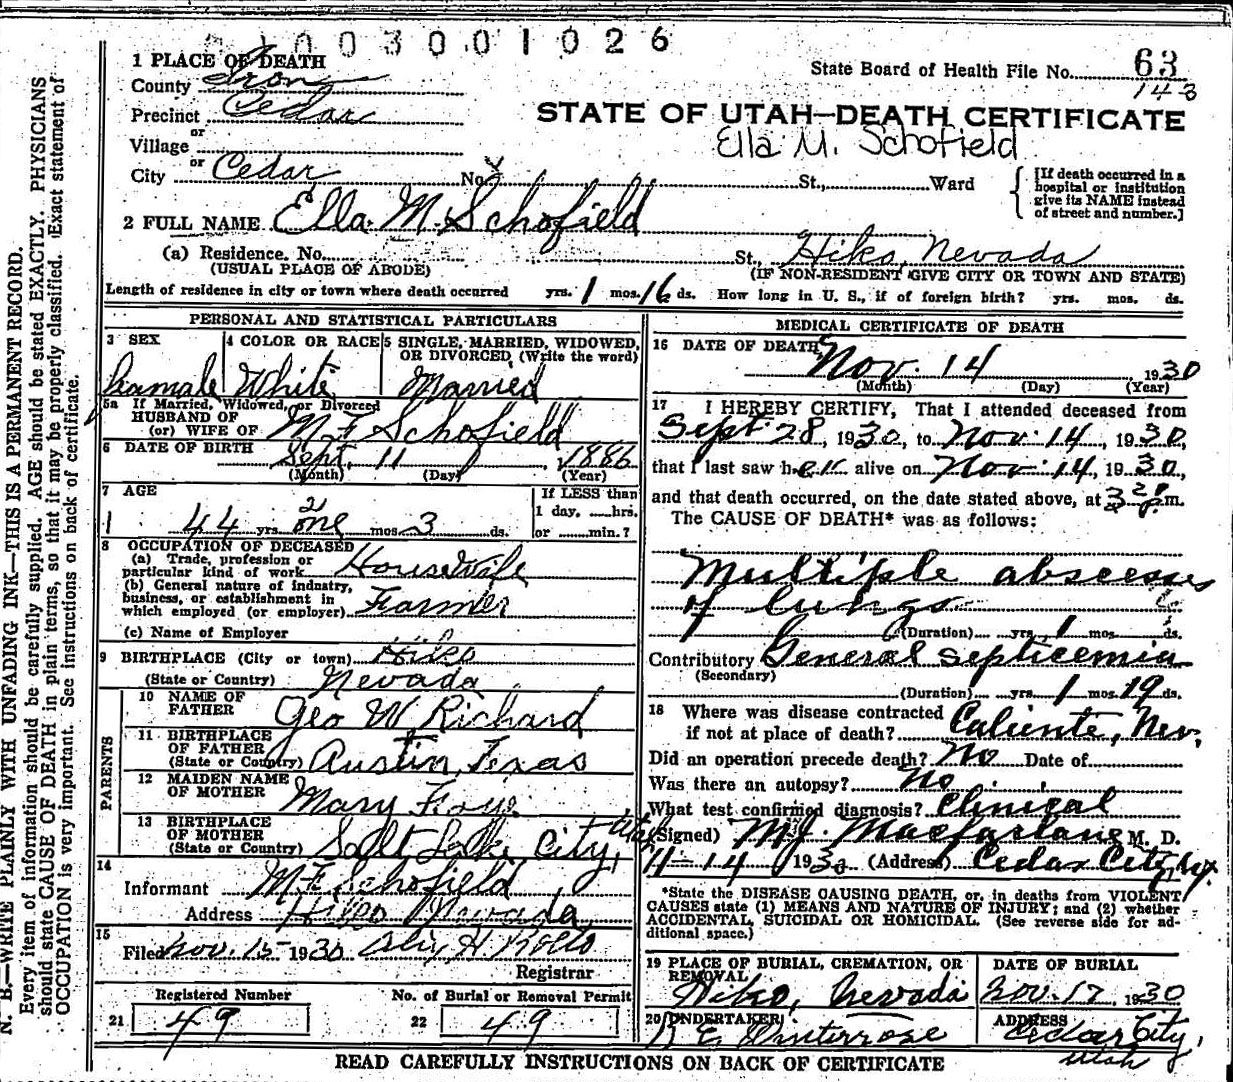 01003001026
1 PLACE OF DEATH
County Iron
State Board of Health File No. 63
143
Precinct Cedar
STATE OF UTAH—DEATH CERTIFICATE
or
Village
Ella M. Schofield
or
City Cedar No. St., Ward
[If death occurred in a hospital or institution give its NAME instead of street and number.]
2 FULL NAME Ella M. Schofield
(a) Residence. No. St., Hiko, Nevada
(USUAL PLACE OF ABODE) (IF NON-RESIDENT GIVE CITY OR TOWN AND STATE)
Length of residence in city or town where death occurred yrs. 1 mos. 16 ds. How long in U. S., if of foreign birth? yrs. mos. ds.
PERSONAL AND STATISTICAL PARTICULARS
3 SEX 4 COLOR OR RACE 5 SINGLE, MARRIED, WIDOWED,
OR DIVORCED, (Write the word)
Female White Married
5a If Married, Widowed, or Divorced
HUSBAND OF
(or) WIFE OF M F Schofield
6 DATE OF BIRTH Sept. 11, 1886
(Month) (Day) (Year)
7 AGE If LESS than
1 day, hrs.
2
44 yrs. one mos. 3 ds. or min.?
8 OCCUPATION OF DECEASED
(a) Trade, profession or
particular kind of work Housewife
(b) General nature of industry,
business, or establishment in
which employed (or employer) Farmer
(c) Name of Employer
9 BIRTHPLACE (City or town) Hiko
(State or Country) Nevada
PARENTS
10 NAME OF
FATHER Geo W Richard
11 BIRTHPLACE
OF FATHER
(State or Country) Austin, Texas
12 MAIDEN NAME
OF MOTHER Mary
13 BIRTHPLACE
OF MOTHER
(State or Country) Salt Lake City, Utah
14
Informant M F Schofield
Address Hiko Nevada
15
Filed Nov. 15 1930
Registrar
Registered Number No. of Burial or Removal Permit
21 49 22 49
MEDICAL CERTIFICATE OF DEATH
16 DATE OF DEATH
Nov. 14, 1930
(Month) (Day) (Year)
17 I HEREBY CERTIFY, That I attended deceased from
Sept 28, 1930, to Nov. 14, 1930,
that I last saw her alive on Nov. 14, 1930,
and that death occurred, on the date stated above, at 3 20 p.m.
The CAUSE OF DEATH* was as follows:
Multiple abscesses
of lungs
(Duration) yrs. 1 mos. ds.
Contributory General septicemia
(Secondary)
(Duration) yrs. 1 mos. 19 ds.
18 Where was disease contracted
if not at place of death? Caliente, Nev.
Did an operation precede death? No Date of
Was there an autopsy? No
What test confirmed diagnosis? Clinical
(Signed) M.J. Macfarlane M. D.
11-14 1930 (Address) Cedar City, Ut.
*State the DISEASE CAUSING DEATH, or, in deaths from VIOLENT
CAUSES state (1) MEANS AND NATURE OF INJURY; and (2) whether
ACCIDENTAL, SUICIDAL OR HOMICIDAL. (See reverse side for ad-
ditional space.)
19 PLACE OF BURIAL, CREMATION, OR DATE OF BURIAL
REMOVAL
Hiko, Nevada Nov. 17, 1930
20 UNDERTAKER ADDRESS
Winterrose Cedar City,
Utah
READ CAREFULLY INSTRUCTIONS ON BACK OF CERTIFICATE
N. B.—WRITE PLAINLY WITH UNFADING INK—THIS IS A PERMANENT RECORD.
Every item of information should be carefully supplied. AGE should be stated EXACTLY. PHYSICIANS
should state CAUSE OF DEATH in plain terms, so that it may be properly classified. Exact statement of
OCCUPATION is very important. See instructions on back of certificate.